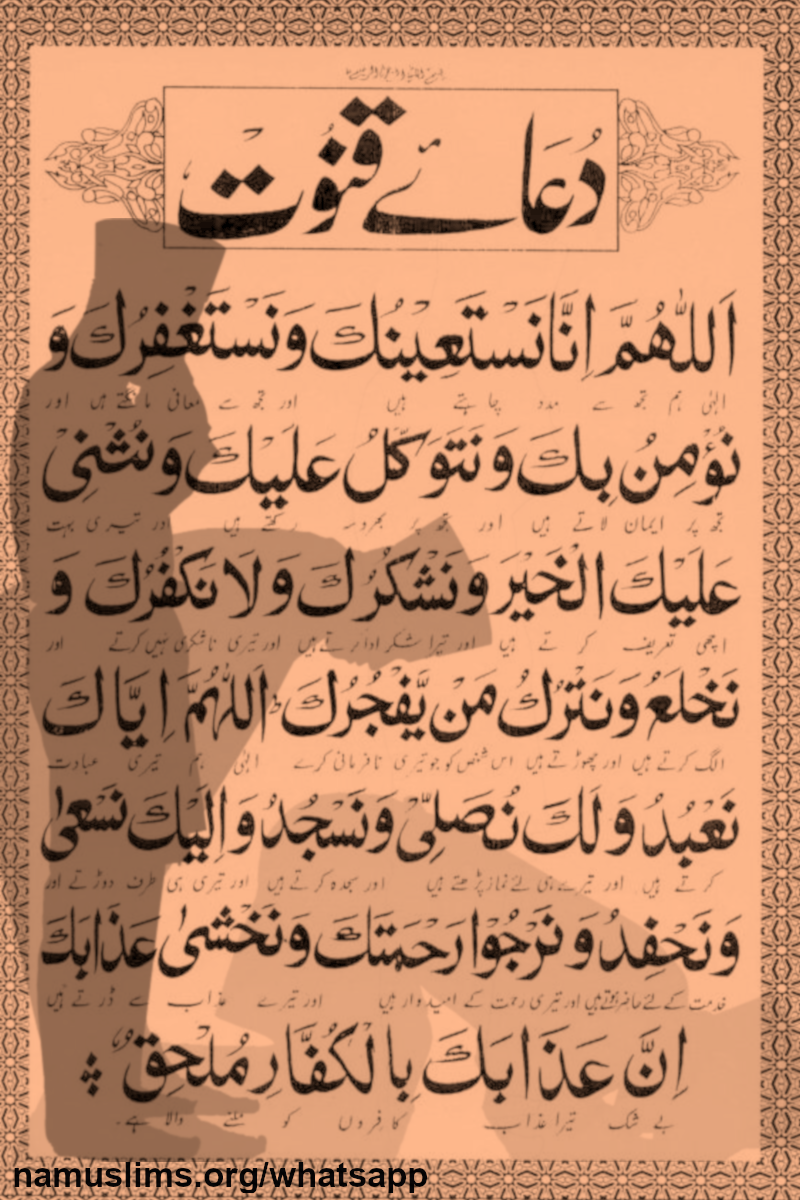 دُعَائے قنُوت
اَللّٰهُمَّ اِنَّا نَسْتَعِيْنُكَ وَنَسْتَغْفِرُكَ وَ
الہٰی ہم تجھ سے مدد چاہتے ہیں اور تجھ سے معافی مانگتے ہیں اور
نُؤْمِنُ بِكَ وَنَتَوَكَّلُ عَلَيْكَ وَنُثْنِیْ
تجھ پر ایمان لاتے ہیں اور تجھ پر بھروسہ رکھتے ہیں اور تیری بہت
عَلَيْكَ الْخَيْرَ وَنَشْكُرُكَ وَلَا نَكْفُرُكَ وَ
اچھی تعریف کرتے ہیں اور تیرا شکر ادا کرتے ہیں اور تیری ناشکری نہیں کرتے اور
نَخْلَعُ وَنَتْرُكُ مَنْ يَّفْجُرُكَ اَللّٰهُمَّ اِيَّاكَ
الگ کرتے ہیں اور چھوڑتے ہیں اس شخص کو جو تیری نافرمانی کرے الہٰی ہم تیری عبادت
نَعْبُدُ وَلَكَ نُصَلِّیْ وَنَسْجُدُ وَاِلَيْكَ نَسْعٰی
کرتے ہیں اور تیرے ہی لئے نماز پڑھتے ہیں اور سجدہ کرتے ہیں اور تیری ہی طرف دوڑتے اور
وَنَحْفِدُ وَنَرْجُوْا رَحْمَتَكَ وَنَخْشٰی عَذَابَكَ
خدمت کے لئے حاضر ہوتے ہیں اور تیری رحمت کے امیدوار ہیں اور تیرے عذاب سے ڈرتے ہیں
اِنَّ عَذَابَكَ بِالْكُفَّارِ مُلْحِقٌ
بے شک تیرا عذاب کافروں کو ملنے والا ہے۔
namuslims.org/whatsapp